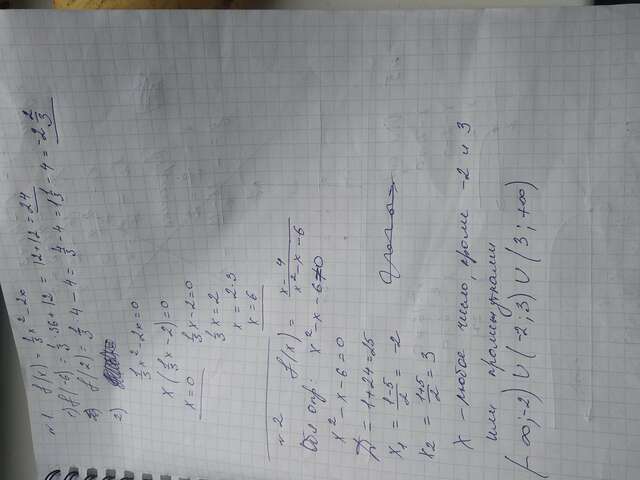 №1 f(x) = 1/3 x² - 2x
1) f(-6) = 1/3 · 36 + 12 = 12 + 12 = 24
2) f(2) = 1/3 · 4 - 4 = 4/3 - 4 = 1 1/3 - 4 = -2 2/3
2)
1/3 x² - 2x = 0
x (1/3 x - 2) = 0
x = 0 1/3 x - 2 = 0
1/3 x = 2
x = 2·3
x = 6
№2 f(x) = x - 4 / x² - x - 6
Обл опр: x² - x - 6 ≠ 0
x² - x - 6 = 0
D = 1 + 24 = 25
x₁ = 1-5/2 = -2
x₂ = 1+5/2 = 3
X - любое число, кроме -2 и 3
или промежутками
(-∞; -2) ∪ (-2; 3) ∪ (3; +∞)